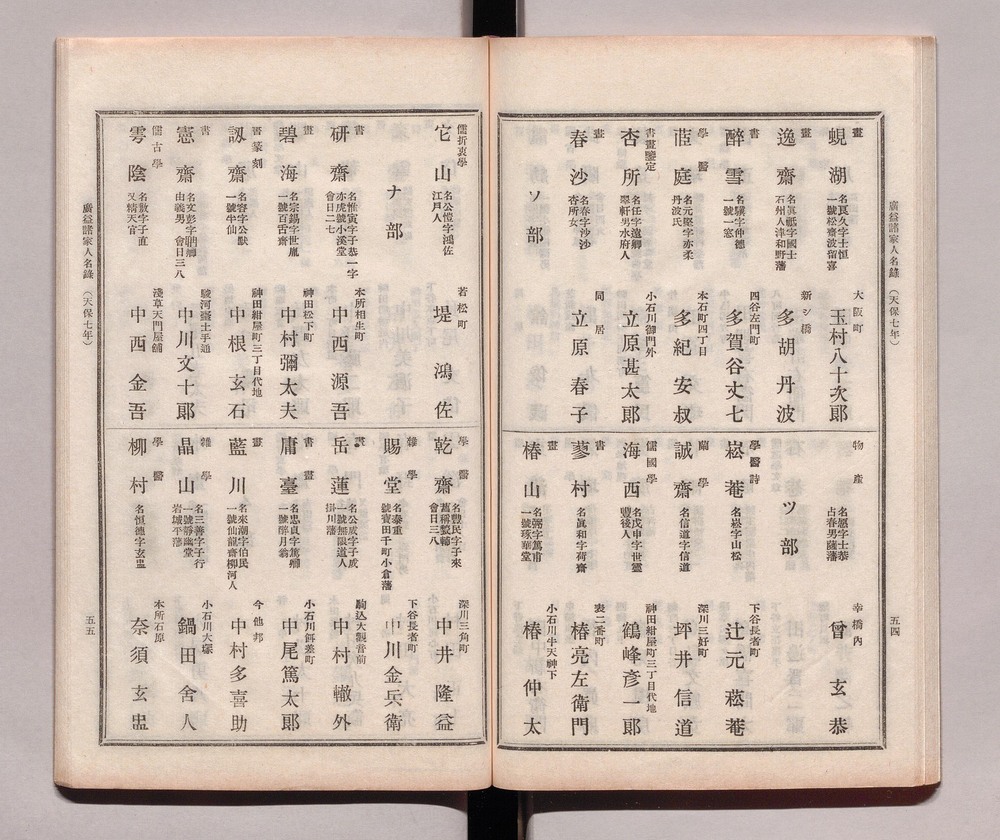 廣益諸家人名錄 (天保七年)
五四
畫
蜆湖
名良久字士恒
一號松齋波留喜
大阪町
玉村八十次郎
畫
逸齋
名眞祗字國士
石州人津和野藩
新シ橋
多胡丹波
書
醉雪
名驥字仲德
一號一窓
四谷左門町
多賀谷丈七
學醫
茝庭
名元堅字亦柔
丹波氏
本石町四丁目
多紀安叔
書畫鑒定
杏所
名任字遠卿
翆軒男水府人
小石川御門外
立原甚太郎
畫
春沙
名春字沙沙
杏所女
同居
立原春子
ソ部
物產
名愿字士恭
占春男薩藩
幸橋內
曾玄恭
ツ部
學醫詩
崧菴
名崧字山松
下谷長者町
辻元菘菴
蘭學
誠齋
名信道字信道
深川三好町
坪井信道
儒國學
海西
名戊申字世靈
豐後人
神田紺屋町三丁目代地
鶴峰彥一郎
書
蓼村
名眞和字荷齋
表二番町
椿亮左衛門
畫
椿山
名弼字篤甫
一號琢華堂
小石川牛天神下
椿仲太
儒折衷學
它山
名公愷字鴻佐
江戶人
若松町
堤鴻佐
ナ部
書
研齋
名惟寅字子恭一字
亦虎號小溪堂
會日二七
本所相生町
中西源吾
畫
碧海
名宗錫字世胤
一號百舌齋
神田松下町
中村彌太夫
書篆刻
訒齋
名容字公默
一號半仙
神田紺屋町三丁目代地
中根玄石
書
憲齋
名文彭字聃卿
由義男 會日三八
駿河臺土手通
中川文十郎
儒古學
雩陰
名敦字子直
又精天官
淺草天門屋舖
中西金吾
學醫
乾齋
名豐民字子來
舊稱製輔
會日三八
深川三角町
中井隆益
雜學
賜堂
名泰重
號寶田千町小倉藩
下谷長者町
中川金兵衛
畫
岳蓮
名公成字子成
一號無限道人
掛川藩
駒込大觀音前
中村轍外
書畫
庸臺
名忠貞字篤卿
一號醉月翁
小石川餌差町
中尾篤太郎
畫
藍川
名來潮字伯民
一號仙龍齋柳河人
今他邦
中村多喜助
雜學
晶山
名三善字子行
一號靜幽堂
岩城平藩
小石川大塚
鍋田舍人
學醫
柳村
名恒德字玄盅
本所石原
奈須玄盅
廣益諸家人名錄 (天保七年)
五五